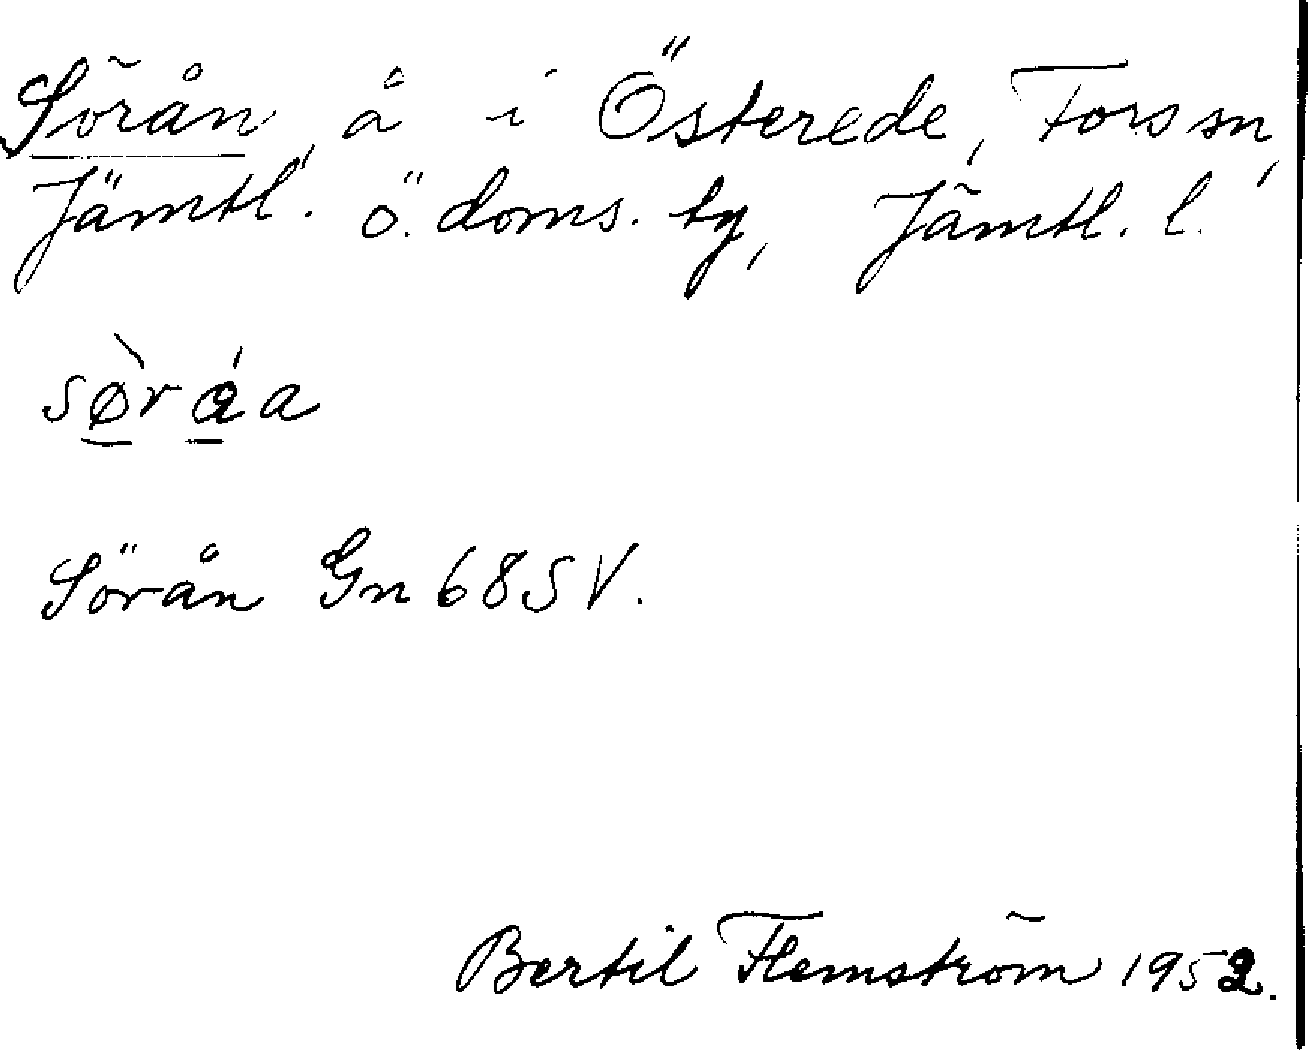 Sörån, å i Österede, Fors sn,
Jämtl. ö. doms. tg, Jämtl. l.
sø̀råa
Sörån Gn 68 SV.
Bertil Flemström 1952.